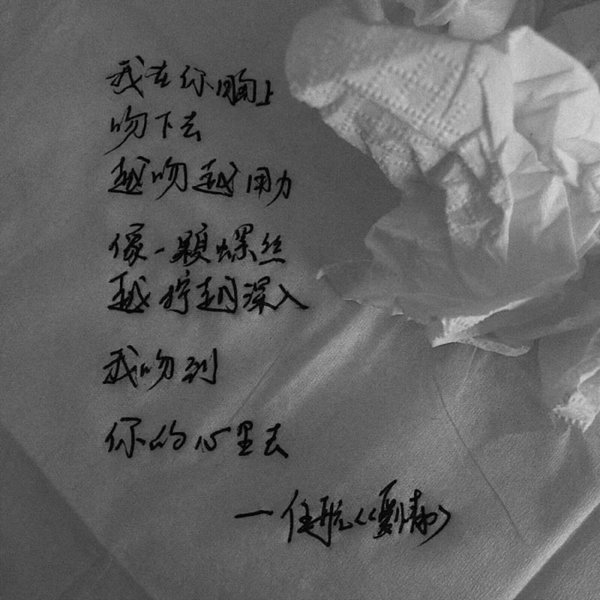 我在你胸上
吻下去
越吻越用力
像一顆螺丝
越拧越深入
我吻到
你的心里去
—任航